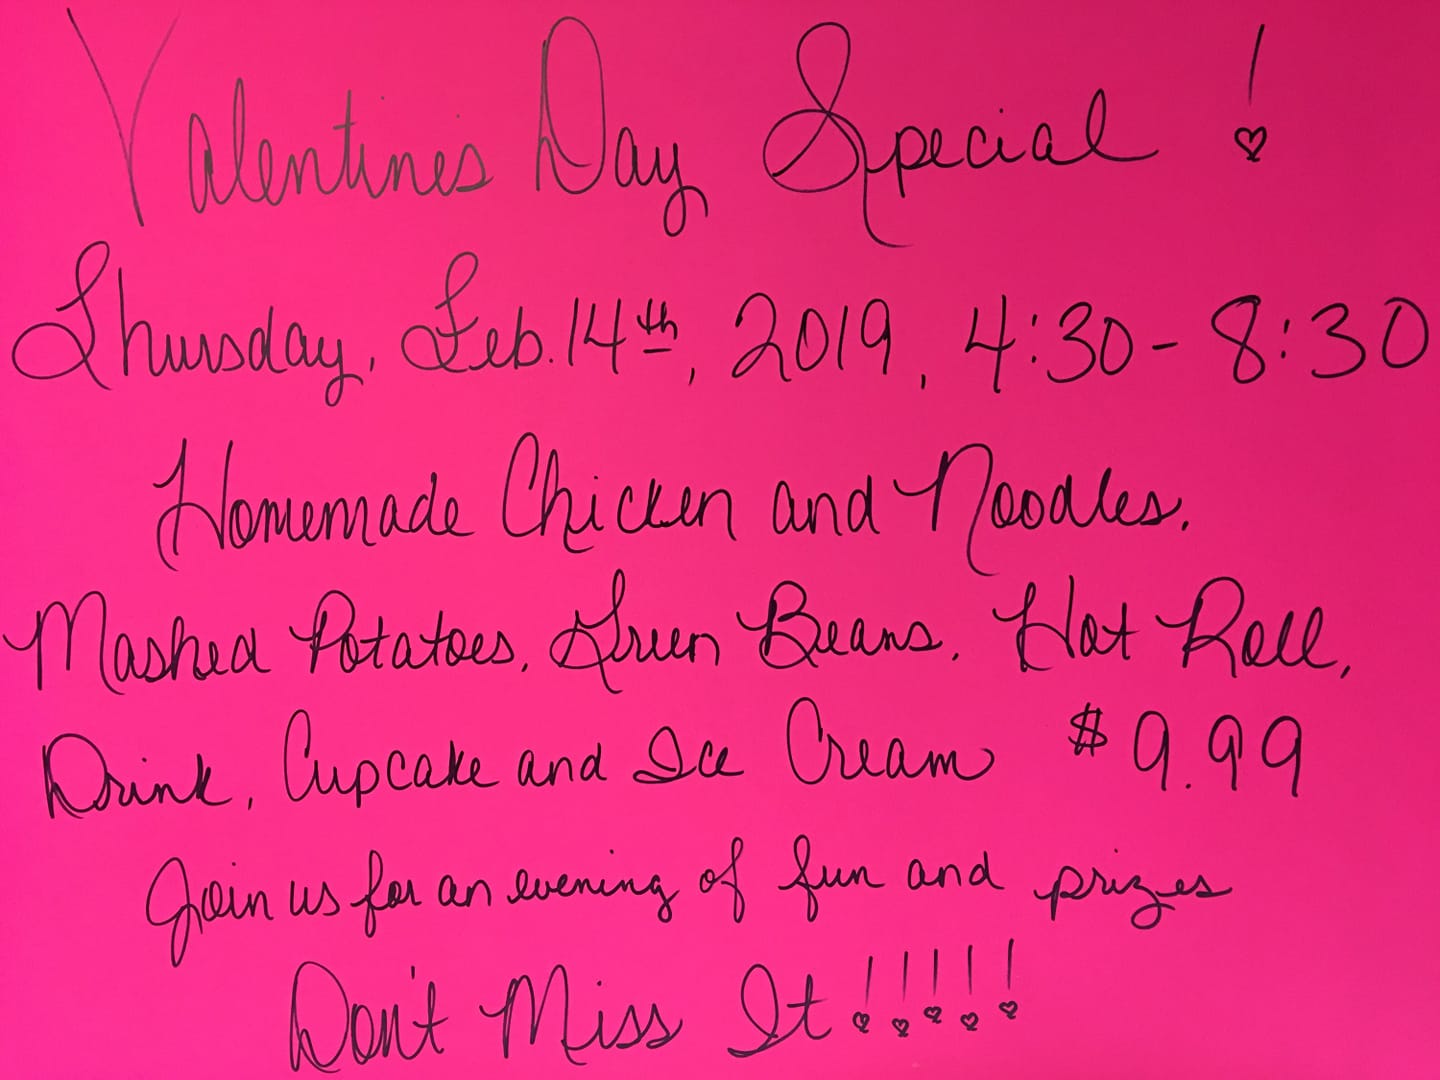 Valentine's Day Special!
Thursday, Feb. 14th, 2019, 4:30-8:30
Homemade Chicken and Noodles,
Mashed Potatoes, Green Beans, Hot Roll,
Drink, Cupcake and Ice Cream $9.99
Join us for an evening of fun and prizes
Don't Miss It!!!!!